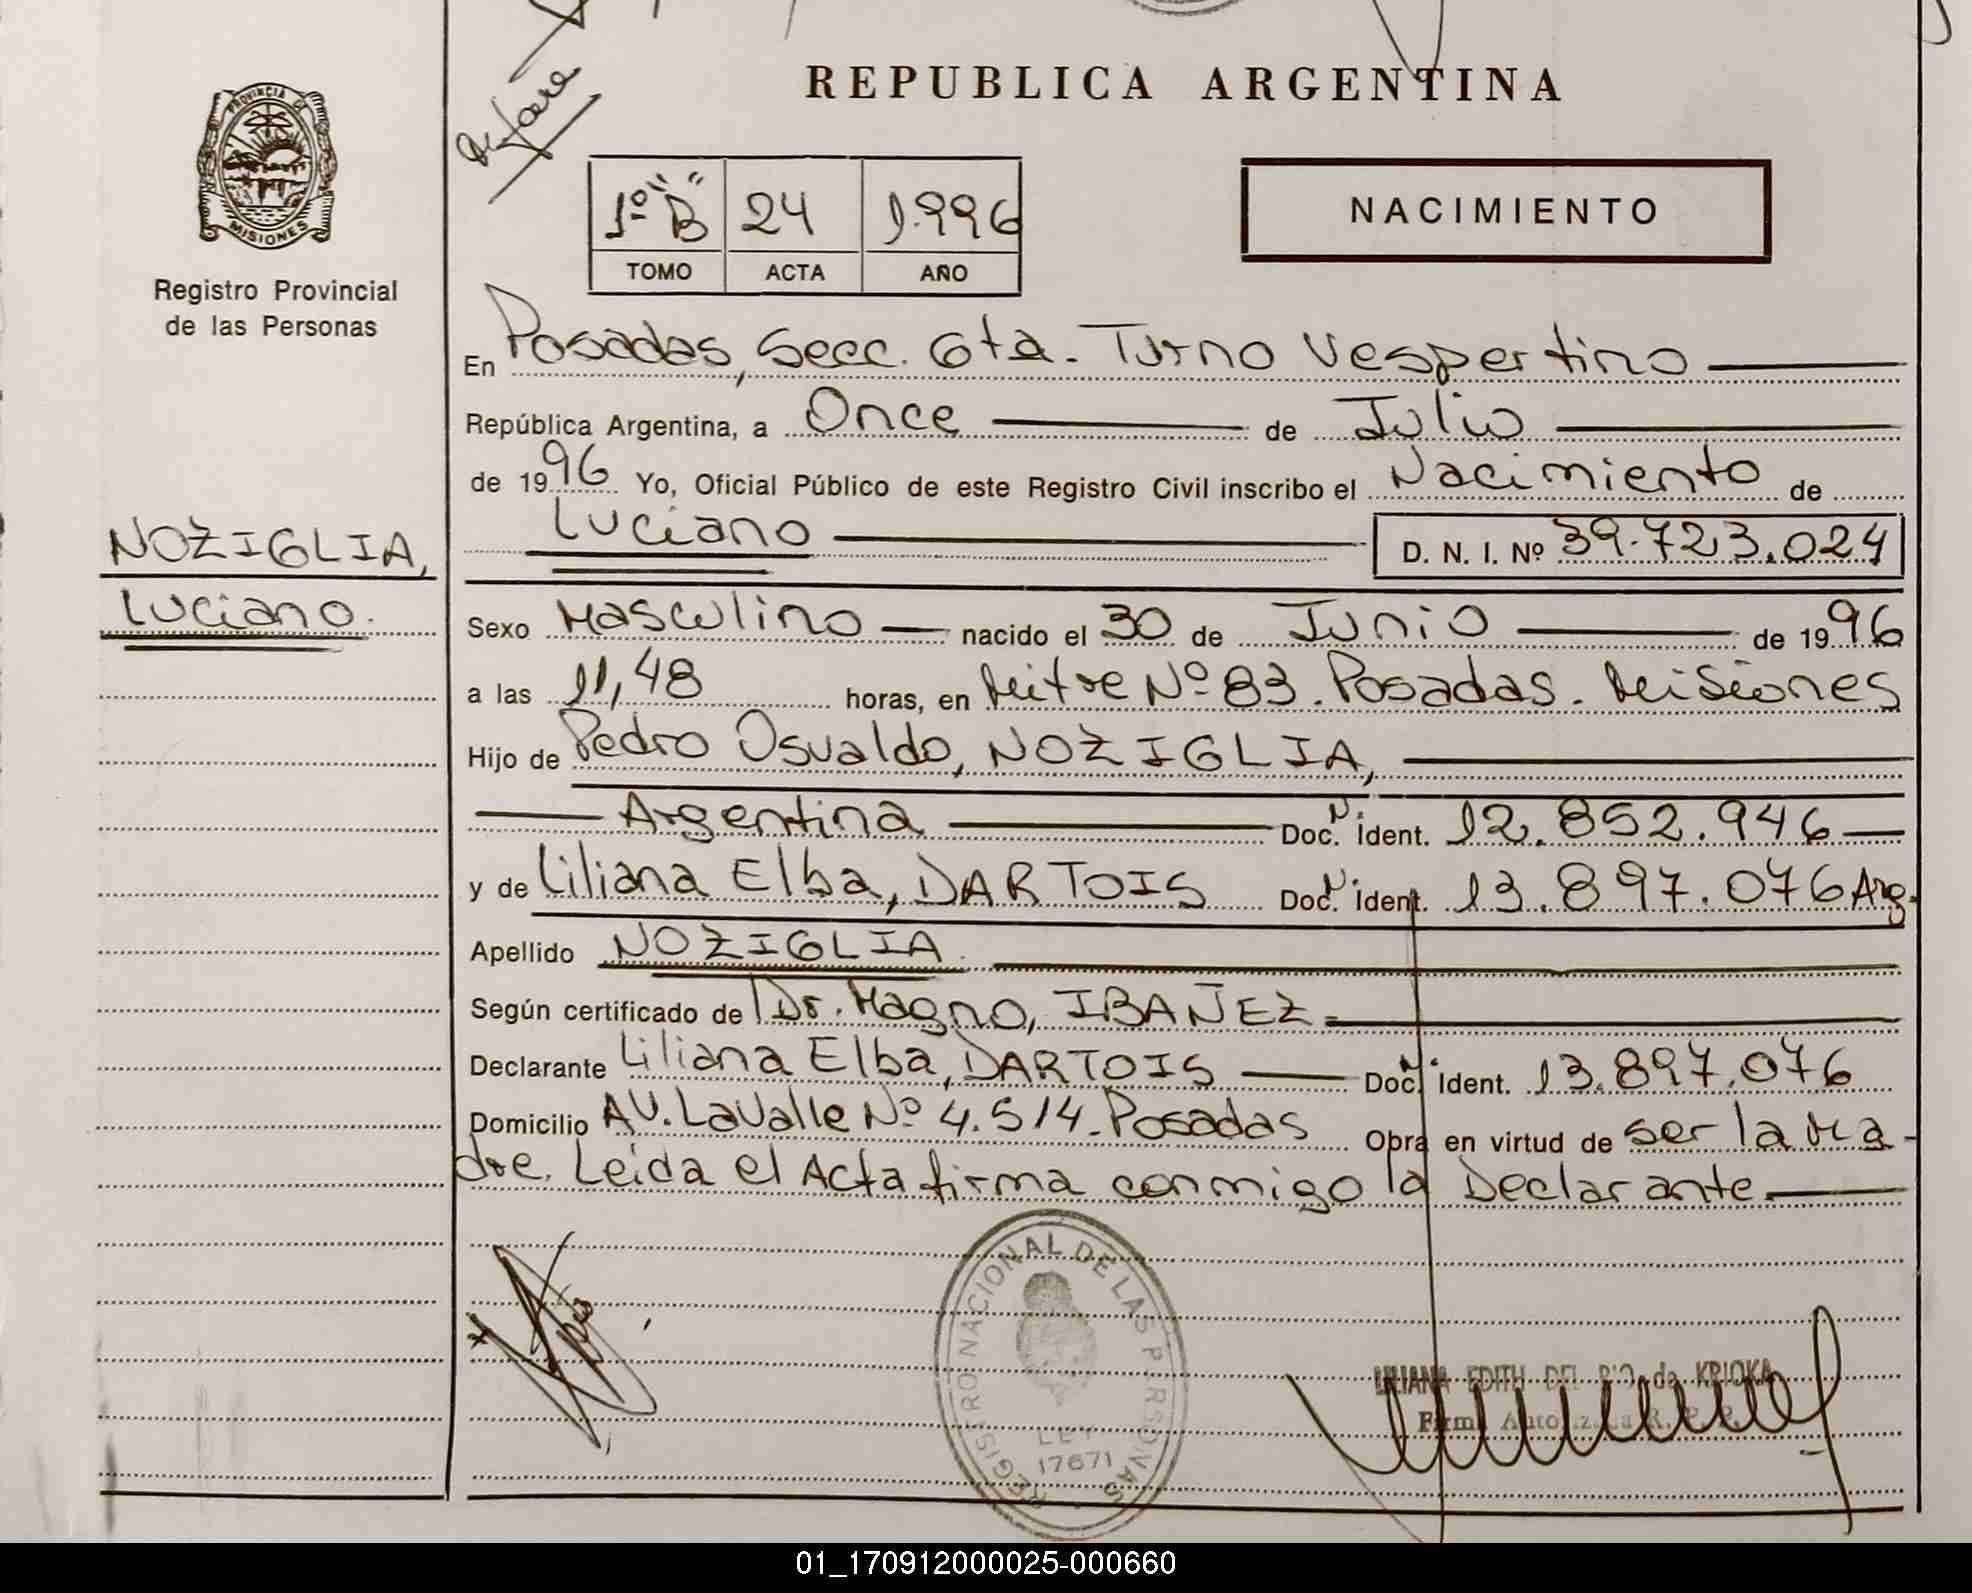 REPUBLICA ARGENTINA
PROVINCIA DE
MISIONES
Registro Provincial
de las Personas
1º "B" 24 1.996
TOMO ACTA AÑO
NACIMIENTO
En Posadas, Secc. 6ta. Turno Vespertino
República Argentina, a Once de Julio
de 1996 Yo, Oficial Público de este Registro Civil inscribo el Nacimiento de
Luciano D. N. I. Nº 39.723.024
NOZIGLIA,
Luciano.
Sexo Masculino nacido el 30 de Junio de 1996
a las 11,48 horas, en Mitre Nº 83. Posadas. Misiones
Hijo de Pedro Osvaldo, NOZIGLIA,
Argentina Doc. N. Ident. 12.852.946
y de Liliana Elba, DARTOIS Doc. N. Ident. 13.897.076 Arg.
Apellido NOZIGLIA.
Según certificado de Dr. Magno, IBAÑEZ
Declarante Liliana Elba, DARTOIS Doc. N. Ident. 13.897.076
Domicilio AV. Lavalle Nº 4.514. Posadas Obra en virtud de ser la Ma-
dre. Leida el Acta firma conmigo la Declarante.
REGISTRO NACIONAL DE LAS PERSONAS
LEY
17671
LILIANA EDITH DEL RIO de KRIOKA
Firma Autorizada R. P. P.
01_170912000025-000660